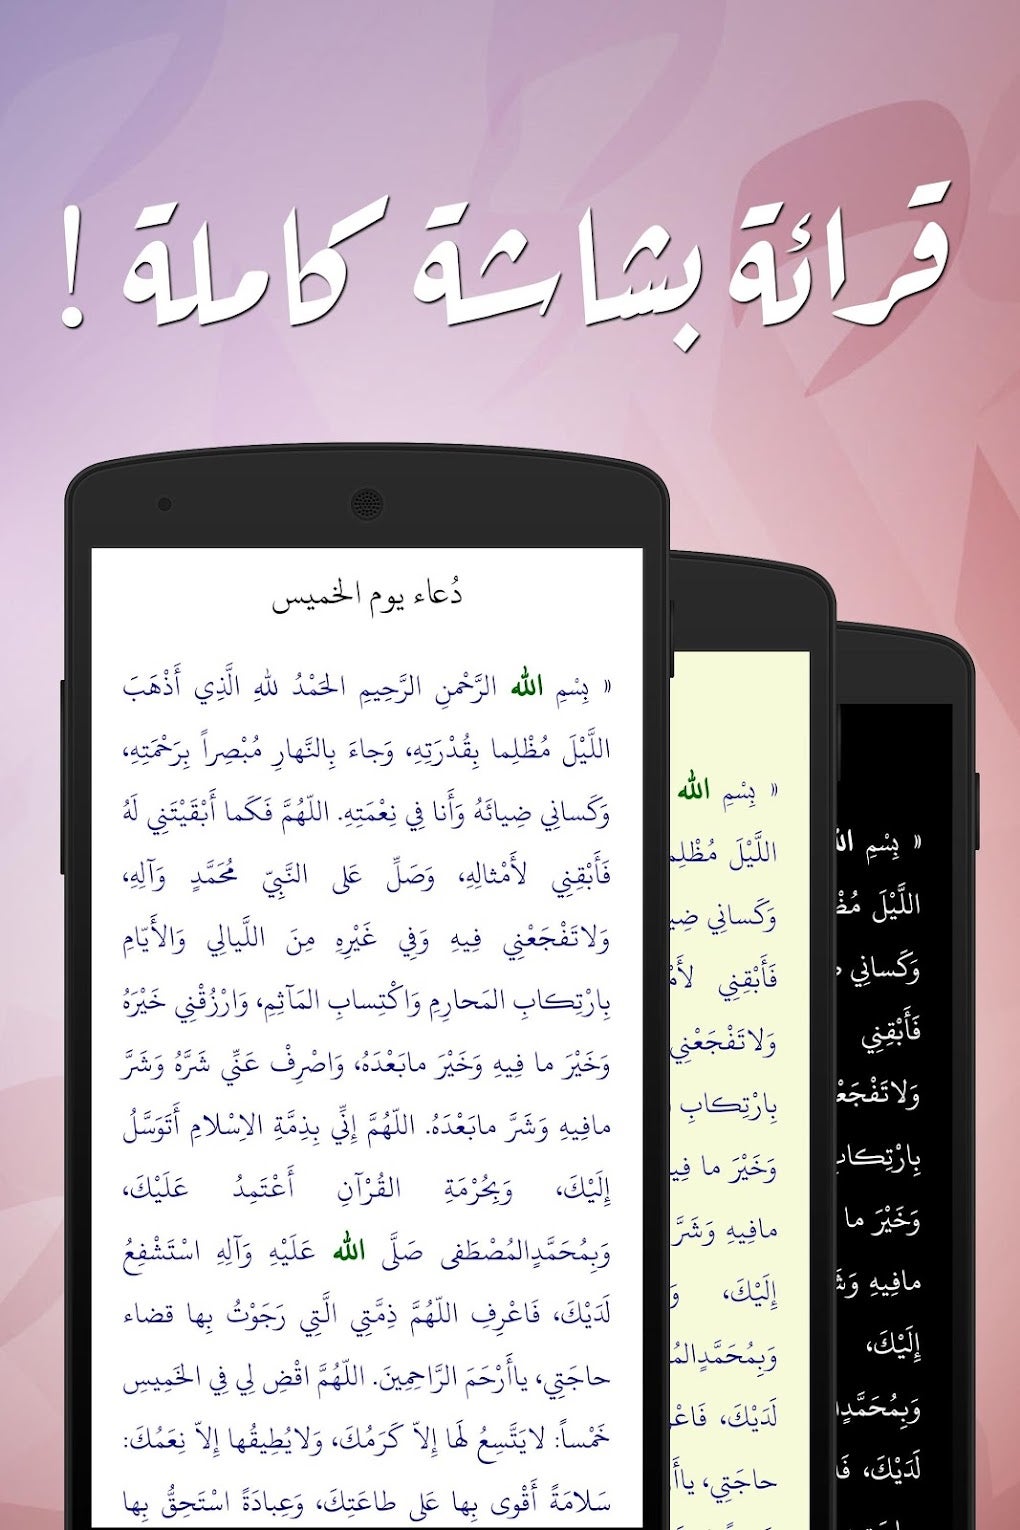 قرائة بشاشة كاملة !
دُعاء يوم الخميس
« بِسْمِ الله الرَّحْمنِ الرَّحِيمِ الحَمْدُ للهِ الَّذِي أَذْهَبَ
اللَّيْلَ مُظْلِما بِقُدْرَتِهِ، وَجاءَ بِالنَّهارِ مُبْصِراً بِرَحْمَتِهِ،
وَكَسانِي ضِيائَهُ وَأَنا فِي نِعْمَتِهِ. اللّهُمَّ فَكَما أَبْقَيْتَنِي لَهُ
فَأَبْقِنِي لأَمْثالِهِ، وَصَلِّ عَلى النَّبِيّ مُحَمَّدٍ وَآلِهِ،
وَلاتَفْجَعْنِي فِيهِ وَفِي غَيْرِهِ مِنَ اللَّيالِي وَالأَيّامِ
بِارْتِكابِ المَحارِمِ وَاكْتِسابِ المَآثِمِ، وَارْزُقْنِي خَيْرَهُ
وَخَيْرَ ما فِيهِ وَخَيْرَ مابَعْدَهُ، وَاصْرِفْ عَنِّي شَرَّهُ وَشَرَّ
مافِيهِ وَشَرَّ مابَعْدَهُ. اللّهُمَّ إِنِّي بِذِمَّةِ الاِسْلامِ أَتَوَسَّلُ
إِلَيْكَ، وَبِحُرْمَةِ القُرْآنِ أَعْتَمِدُ عَلَيْكَ،
وَبِمُحَمَّدٍالمُصْطَفى صَلَّى الله عَلَيْهِ وَآلِهِ اسْتَشْفِعُ
لَدَيْكَ، فَاعْرِفِ اللّهُمَّ ذِمَّتِي الَّتِي رَجَوْتُ بِها قضاء
حاجَتِي، ياأَرْحَمَ الرَّاحِمِينَ. اللّهُمَّ اقْضِ لِي فِي الخَمِيسِ
خَمْساً: لايَتَّسِعُ لَها إِلاّ كَرَمُكَ، وَلايُطِيقُها إِلاّ نِعَمُكَ:
سَلامَةً أَقْوى بِها عَلى طاعَتِكَ، وَعِبادَةً اسْتَحِقُّ بِها
« بِسْمِ الله
اللَّيْلَ
وَكَسانِي
فَأَبْقِنِي
وَلاتَفْجَعْنِي
بِارْتِكابِ
وَخَيْرَ ما
مافِيهِ وَشَرَّ
إِلَيْكَ،
لَدَيْكَ،
حاجَتِي،
« بِسْمِ
اللَّيْلَ
وَكَسانِي
فَأَبْقِنِي
وَخَيْرَ ما
مافِيهِ
إِلَيْكَ،
لَدَيْكَ،